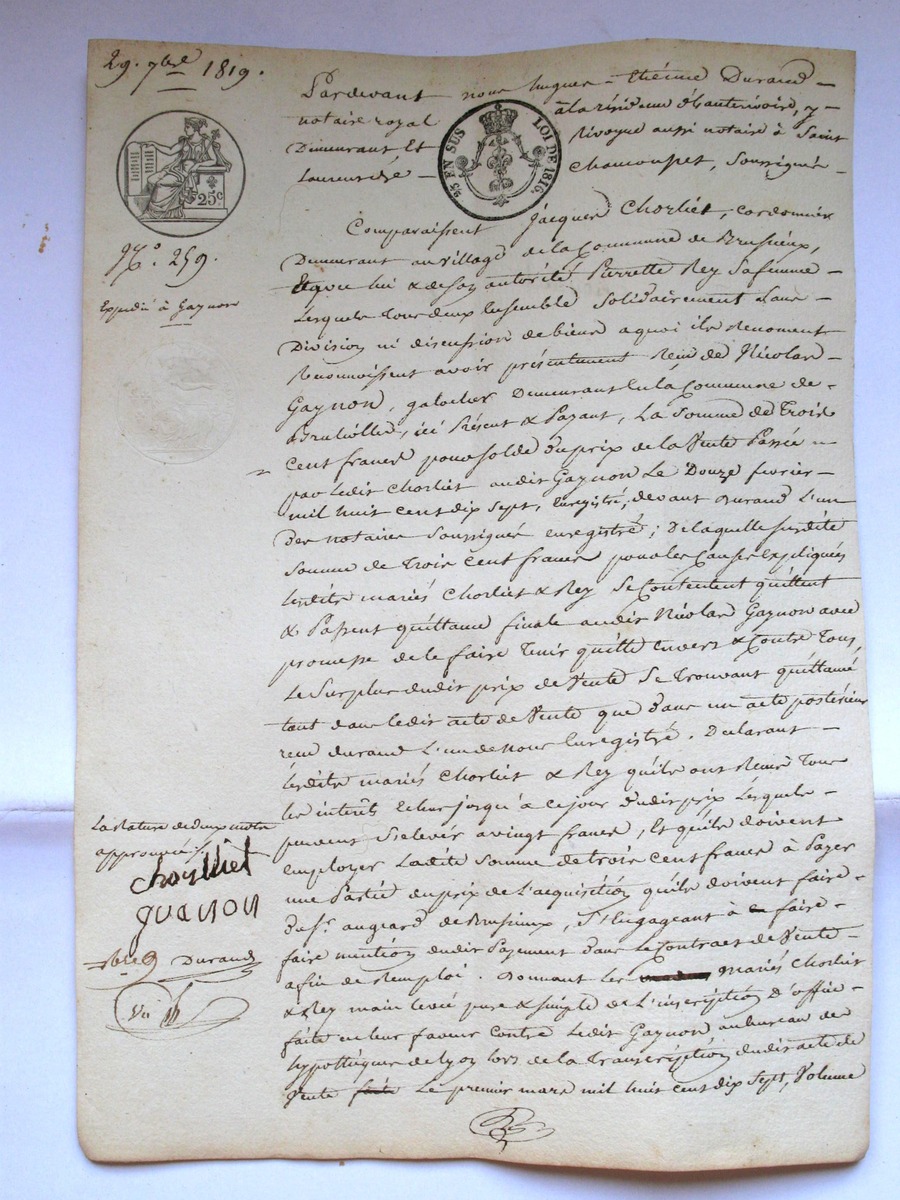 29. 7bre 1819.
Pardevant nous hugues - Etiénne Durand -
notaire royal à la résidence d'hauterivoire, y -
Demeurant Et Rivoyre aussi notaire à Saint
Laurent de - Chamousset, Soussignés -
25c
25c EN SUS LOI DE 1816.
No. 259.
Expédié à Gaynon
Comparaissent Jacques Chorliet, Cordonnier
Demeurant au village de la Commune de Brusieux,
Lequel lui & de son autorité Pierrette Rey Sa femme -
Lesquels tous deux Ensemble Solidairement Sans -
Division ni discussion de biens a quoi ils Renoncent
Reconnoissent avoir présentement Reçu de Nicolas -
Gaynon, galocher Demeurant En la Commune de -
Brulliolles, ici Présent & Payant, La Somme de Trois
Cent francs pour Solde Du prix de la Vente Passée
par Ledit Chorliet audit Gaynon Le Douze fevrier -
mil huit Cent dix Sept, Enregistré, devant Durand L'un
Des notaires Soussignés enregistré; De laquelle susdite
Somme de Trois Cent francs pour les Causes Expliquées
Lesdits mariés Chorliet & Rey Se Contentent quittent
& Passent quittance finale audit Nicolas Gaynon avec
promesse de le faire Tenir quitte Envers & Contre Tous,
Le Surplus dudit prix de Vente Se trouvant quittancé
tant dans ledit acte de Vente que dans un acte postérieur
reçu durand L'un de nous Enregistré. Déclarant -
Lesdits mariés Chorliet & Rey qu'ils ont Reçus Tous
les intérêts Echus jusqu'à Ce jour dudit prix Lesquels -
peuvent S'elever a vingt francs, Et qu'ils doivent
employer Ladite Somme de trois Cent francs à Payer
une Partie du prix de L'acquisition qu'ils doivent faire -
Du Sr. augeard de Brusieux, S'Engageant à faire -
faire mention dudit Payement Dans le Contract de Vente -
afin de Remploi. Donnant les mariés Chorliet
& Rey main levée pure & simple de L'inscription D'office -
faite en leur faveur Contre Ledit Gaynon au bureau des
hypothèques de Lyon lors de la Transcription dudit acte de
Vente faite Le premier mars mil huit Cent dix Sept, Volume
La Rature de deux mots
approuvée
Choylliet
guanon
Durand